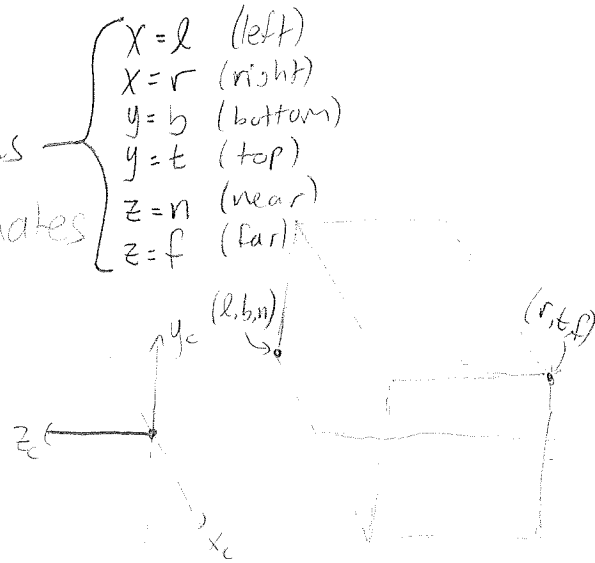 x = l (left)
x = r (right)
y = b (bottom)
y = t (top)
z = n (near)
z = f (far)
(l,b,n)
(r,t,f)
y_c
z_c
x_c